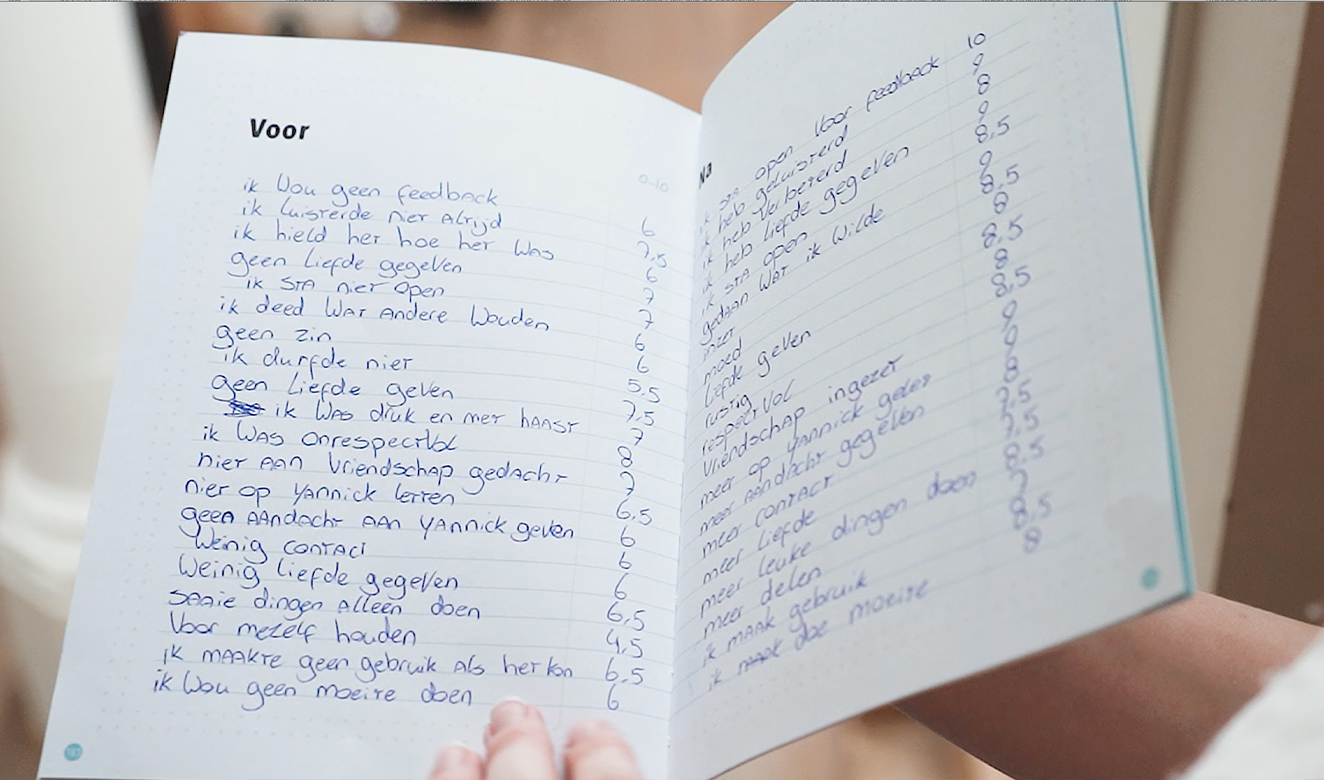 Voor
0-10
ik wou geen feedback 6
ik luisterde niet altijd 7,5
ik hield het hoe het was 6
geen liefde gegeven 7
ik sta niet open 7
ik deed wat andere wouden 6
geen zin 6
ik durfde niet 5,5
geen liefde geven 7,5
ik was druk en met haast 7
ik was onrespectvol 8
niet aan vriendschap gedacht 7
niet op yannick letten 6,5
geen aandacht aan yannick geven 6
weinig contact 6
weinig liefde gegeven 6
saaie dingen alleen doen 6,5
voor mezelf houden 4,5
ik maakte geen gebruik als het kon 6,5
ik wou geen moeite doen 6
Na
ik sta open voor feedback 10
ik heb geluisterd 9
ik heb verbeterd 8
ik heb liefde gegeven 9
ik sta open 8,5
gedaan wat ik wilde 9
inzet 8,5
moed 8
liefde geven 8,5
rustig 8
respectvol 8,5
vriendschap ingezet 9
meer op yannick gelet 9
meer aandacht gegeven 8
meer contact
meer liefde 7,5
meer leuke dingen doen 8,5
meer delen 7
ik maak gebruik 8,5
ik doe moeite 8